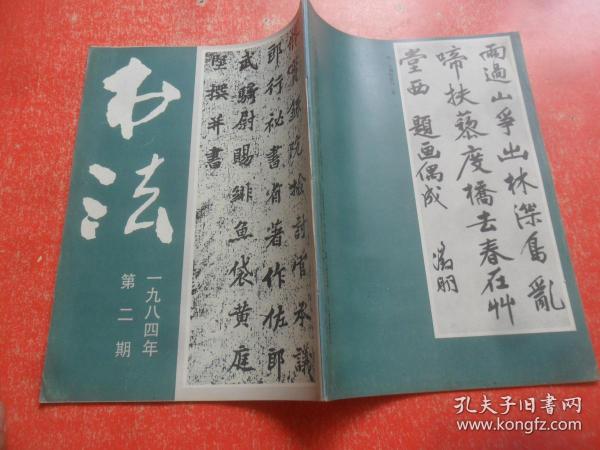 书法
一九八四年
第二期
郎行祕書省著作佐郎
武騎尉賜緋魚袋黄庭
堅撰并書
雨過山爭出林深鳥亂
啼扶藜度橋去春在艸
堂西 題画偶成
孔夫子旧书网
www.kongfz.com